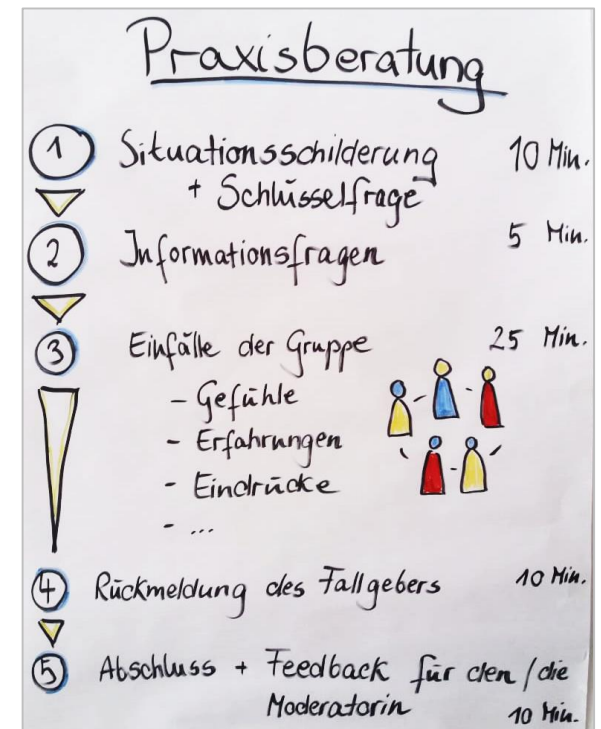 Praxisberatung
1 Situationsschilderung 10 Min.
+ Schlüsselfrage
2 Informationsfragen 5 Min.
3 Einfälle der Gruppe 25 Min.
- Gefühle
- Erfahrungen
- Eindrücke
- ...
4 Rückmeldung des Fallgebers 10 Min.
5 Abschluss + Feedback für den / die
Moderatorin 10 Min.